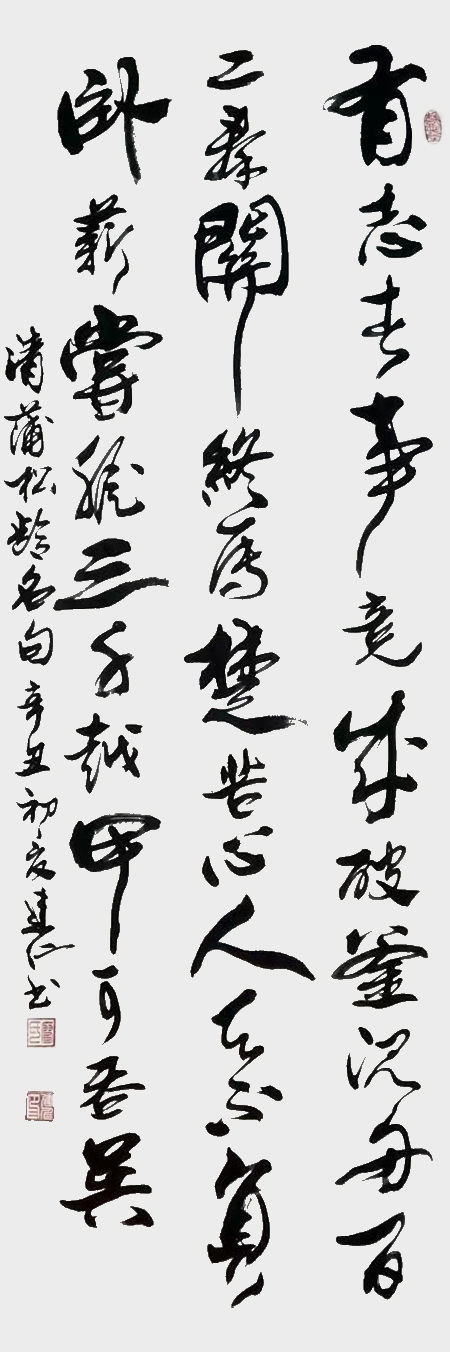 有志者事竟成破釜沉舟百
二秦關終属楚苦心人天不負
卧薪嘗膽三千越甲可吞吴
清蒲松齡名句辛丑初夏建仙书